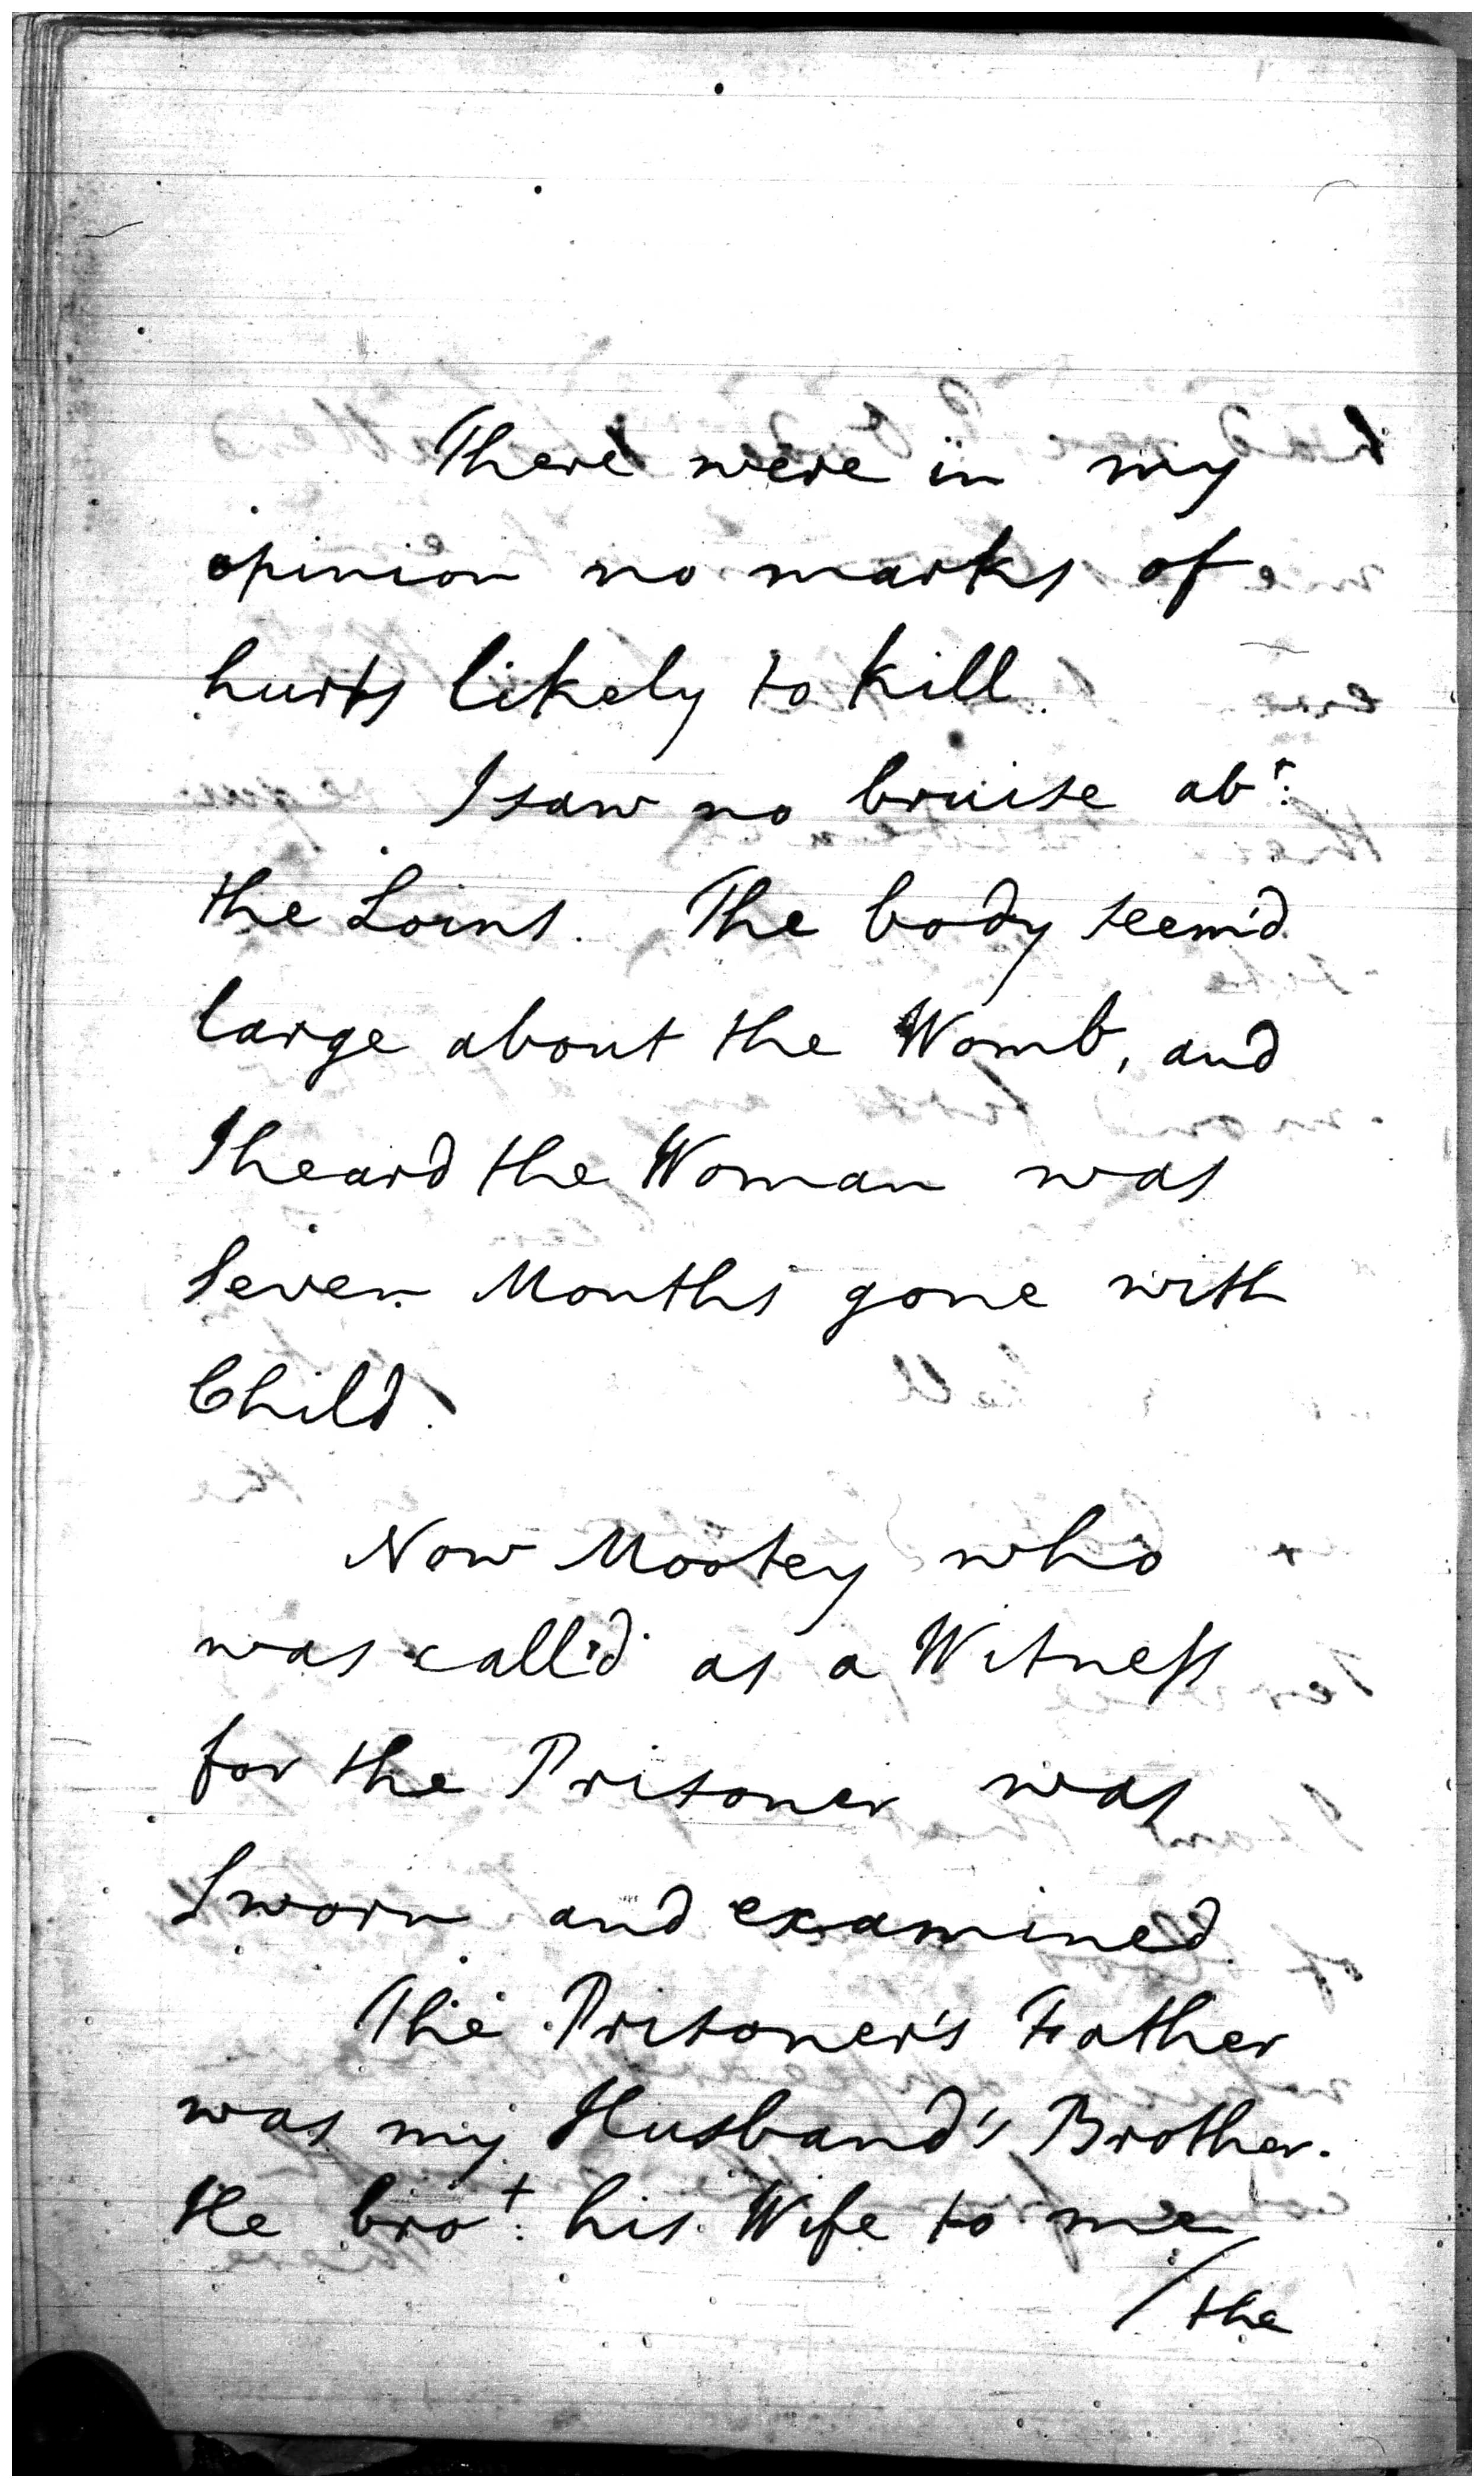 There were in my
opinion no marks of
hurts likely to kill.
I saw no bruise abt:
the Loins. The body seem'd
large about the Womb, and
I heard the Woman was
Seven Months gone with
Child.
Now Mootey who
was call'd as a Witness
for the Prisoner was
Sworn and examined.
The Prisoner's Father
was my Husband's Brother.
He brot: his Wife to me
/the